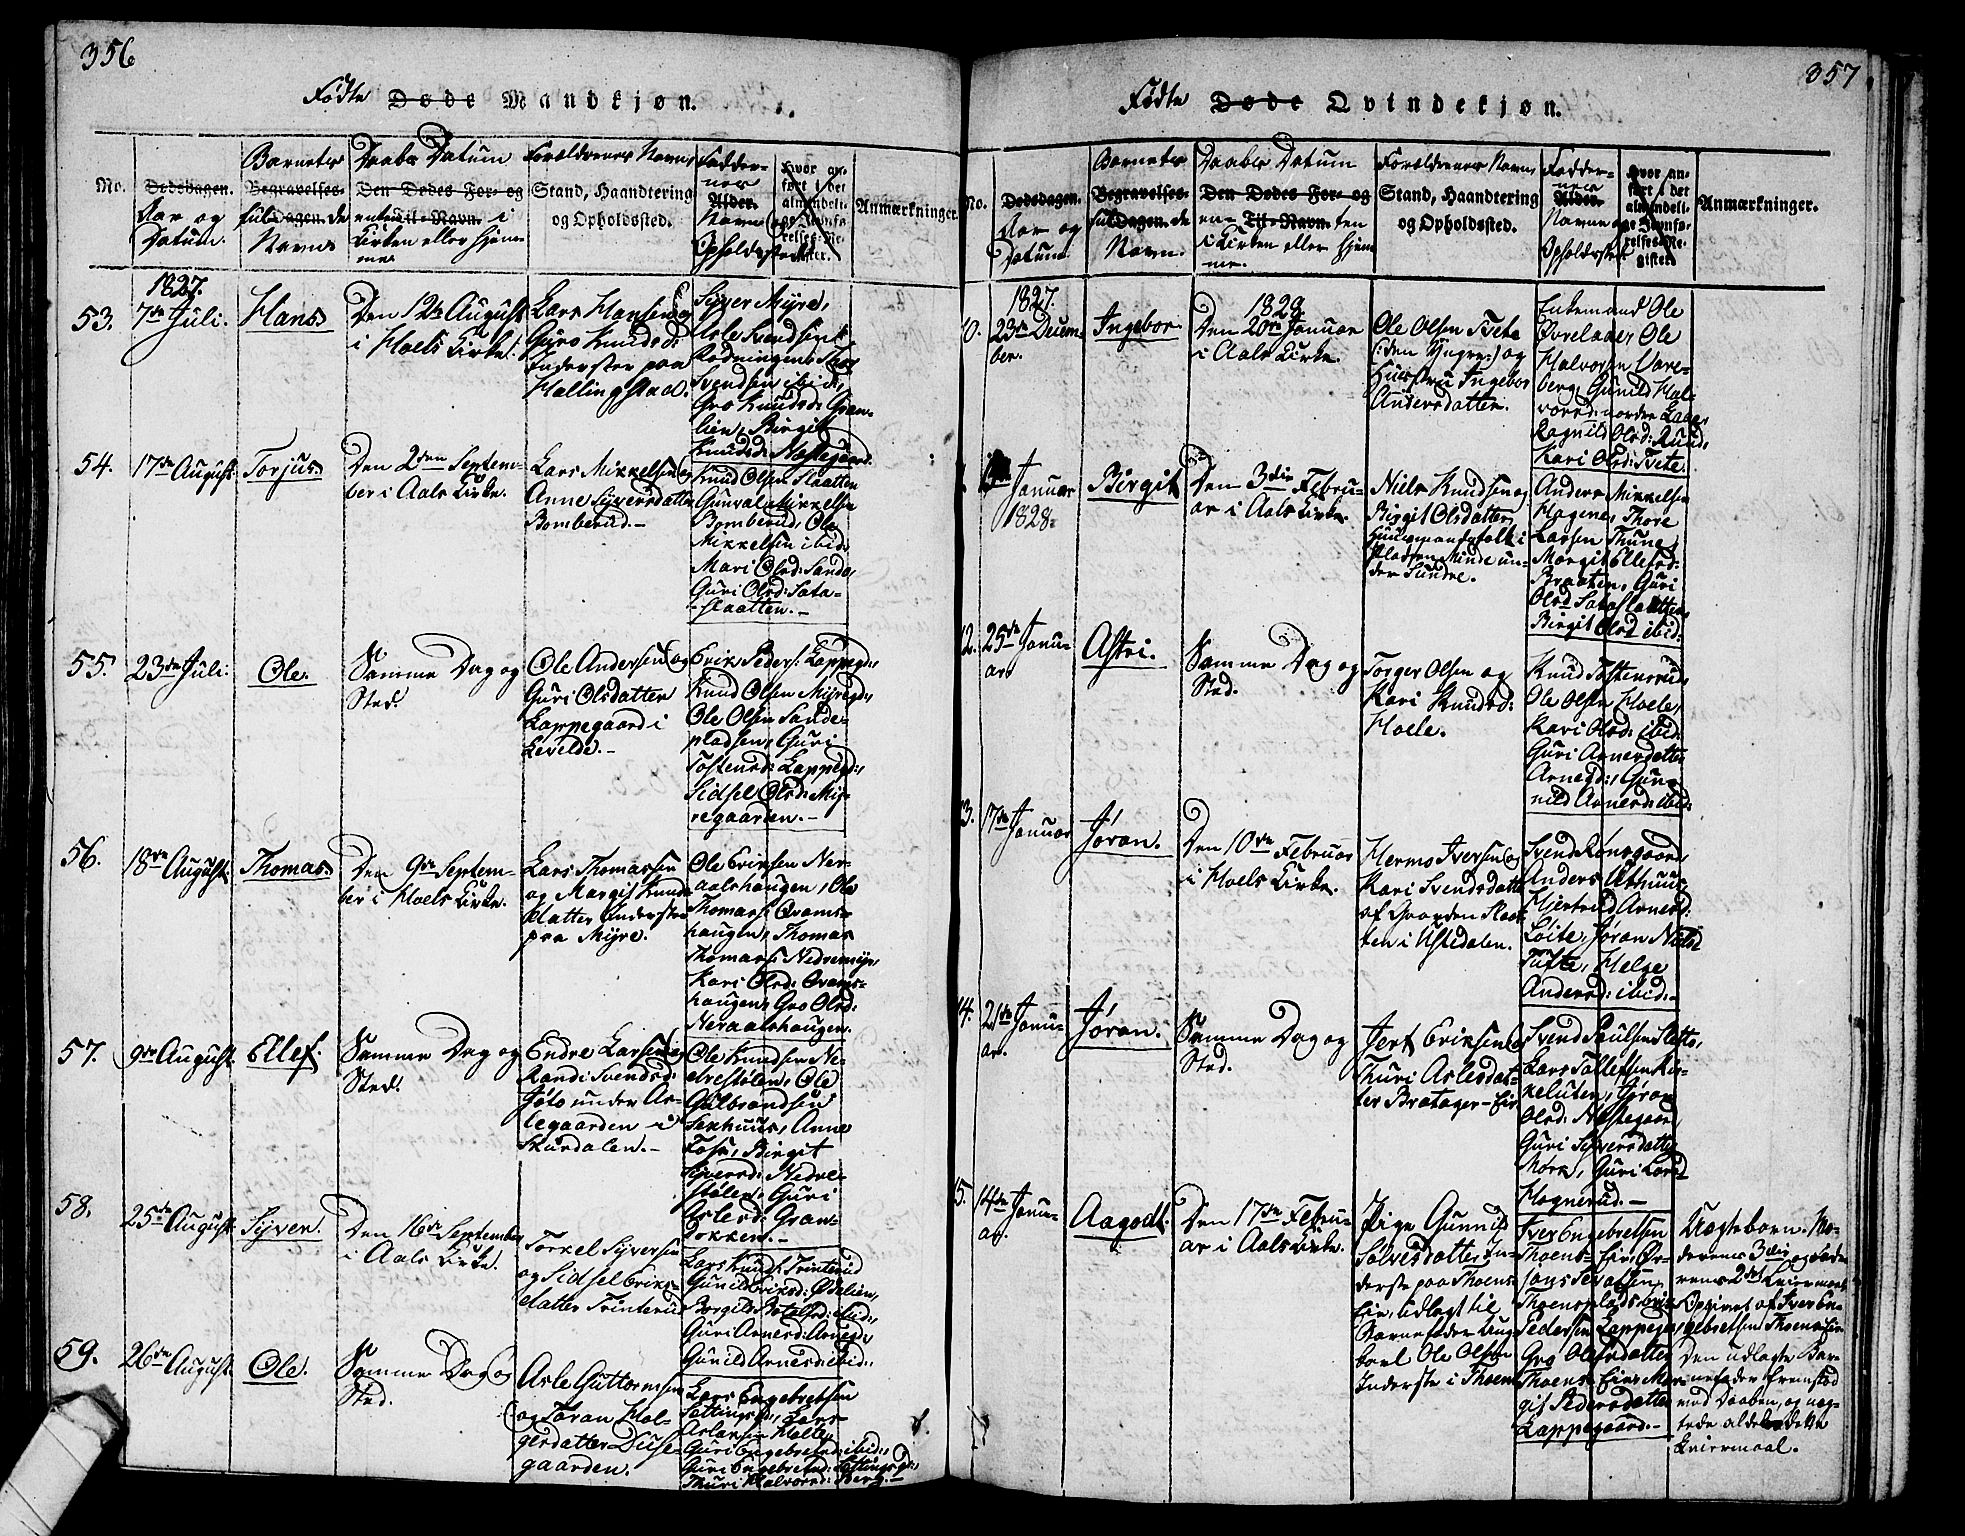 356
Fødte Døde Mandkjøn.
No.
Dødsdagen.
Aar og
Datum.
Barnets
Begravelses-
fulde Dagen.
Navn
Daabs Datum
Den Dødes For- og
enten Til-Navn. i
Kirken eller hjem-
me
Forældrenes Navn,
Stand, Haandtering
og Opholdssted.
Faddernes
Alder.
Navn og
Opholdssted
Hvor an-
ført i det
almindeli-
ge Jevnfø-
relses-Re-
gister.
Anmærkninger.
53.
1827.
7de Juli.
Hans
Den 12te August
i Hoels Kirke.
Lars Hansen og
Guro Knudsd:
Inderster paa
Hallingstad.
Syver Myre,
Asle Svendsen
Rødningen, Thor
Svendsen ibid,
Gro Knudsd: Gran-
lien, Birgit
Knudsd: Nestegaard.
54.
17de August
Torjus
Den 2den Septem-
ber i Aals Kirke.
Lars Mikkelsen og
Anne Syversdatter
Bomberud.-
Knud Olsen Slaatten
Gunval Mikkelsen
Bomberud, Ole
Mikkelsen ibid,
Mari Olsd: Sando,
Guri Olsd: Sata-
slaatten.-
55.
23de Juli.
Ole.
Samme Dag og
Sted.
Ole Andersen og
Guri Olsdatter
Lappegaard i
Levelde.-
Erik Peders: Lappegd:,
Knud Olsen Myregd:,
Ole Olsen Sande-
pladsen, Guri
Tostensd: Lappegd:,
Sidsel Olsd: My-
regaarden.-
56.
18de August.
Thomas
Den 9de Septem-
ber i Hoels Kirke.
Lars Thomassen
og Margit Knuds
datter Inderster
paa Myre.
Ole Eriksen Ner-
aalshaugen, Ole
Thomass:
haugen, Thomas
Thomass: Nedremyr,
Kari Olsd:
haugen, Gro Olsd:
Neraalshaugen.
57.
9de August
Ellef.
Samme Dag og
Sted.
Endre Larsen og
Randi Svendsd:
Joto under As-
legaarden i
Skurdalen.-
Ole Knudsen Ne-
drestølen, Ole
Gulbrandsen
Anne
Birgit
Syversd: Nedre-
stølen, Guri
Aslesd: Gran-
58.
25de August
Syver.
Den 16de September
i Aals Kirke.
Torkel Syversen
og Sidsel Eriks-
datter Trinterud
Lars Knuds: Trinterud
Gunild Eriksd: Ødelien,
Borgild Botelfsd: ibid:,
Guri Arnesd: Arnegd:,
Gunild Arnesd: ibid:.
59.
26de August
Ole.
Samme Dag og
Sted.
Asle Guttormsen
og Jøran Hol-
gersdatter Tuse-
gaarden.
Lars Engebretsen
Sattingsgd:, Lars
Aslaksen
Guri Engebretsd: ibid:,
Guri Engebretsd: Sattingsgd:,
Thuri Halvorsd: Berg.-
357
Fødte Døde Qvindekjøn.
No.
Dødsdagen.
Aar og
Datum
Barnets
Begravelses-
fulde Dagen.
Navn.
Daabs Datum
Den Dødes For- og
en- Til-Navn. ten
i Kirken eller hjem
me.
Forældrenes Navn
Stand, Haandtering
og Opholdssted.
Faddernes
Alder.
Navne og
Opholdssted
Hvor an-
ført i det
almindeli-
ge Jevnfø-
relses-Re-
gister
Anmærkninger.
10.
1827.
23de Decem-
ber.
Ingebor
1828
Den 20de Januar
i Aals Kirke.
Ole Olsen Tvete
(:den Yngre:) og
Huustru Ingebor
Andersdatter.
Enkemand Ole
Ole
Halvorsen Vare-
berg, Gunild Hal-
vorsd: nordre Lage,
Ragnild Olsd: Ruud,
Kari Olsd: Tvete.
Januar
1828.
Birgit
Den 3die Febru-
ar i Aals Kirke.
Niels Knudsen og
Birgit Olsdatter
Huusmandsfolk i
Pladsen Minde un-
der Sundre.
Anders Mikkelsen
Hagene, Thore
Larsen Thune,
Margit Ellefsd:
Braaten, Guri
Olsd Sataslaatten,
Birgit Olsd ibid.
12.
25de Janu-
ar
Astri.
Samme Dag og
Sted.
Torger Olsen og
Kari Knudsd:
Hoele.
Knud Tostensrud,
Ole Olsen Hoele,
Kari Olsd: ibid:
Guri Arnesdatter
Arnegd:, Gun-
nild Arnesd: ibid:
13.
17de
Januar
Jøran.
Den 10de Februar
i Hoels Kirke.
Hermo Iversen og
Kari Svendsdatter
af Gaarden Slaat-
ten i Ustedalen.
Svend Rensgaard,
Anders Uthuus,
Hjertrud Arnesd:
Løite, Jøran Nielsd
Tufte, Helge
Andersd: ibid:-
14.
21de Janu-
ar.
Jøran.
Samme Dag og
Sted.
Jert Eriksen og
Thuri Aslesdat-
ter Bratager-Eie
Svend Paulsen Sletto,
Lars Tollefsen Ki-
keluten, Jøran
Olsd: Nestegaard,
Guri Syversdatter
Mørk, Guri Larsd
Hognerud.-
15.
14de Janu-
ar.
Aagodt.
Den 17de Febru-
ar i Aals Kirke.
Pige Gunnild
Sølvesdatter In-
derste paa Thoens
Eie, udlagt til
Barnefader Ung-
karl Ole Olsen
Inderste i Thoens
Iver Engebretsen
Thoens-Eie,
Thoensplads, Erik
Pedersen Lappegd:
Gro Olesdatter
Thoens Eie, Mar-
git Pedersdatter
Lappegaard.-
Uægteborn. Mo-
derens 3die og Fade-
rens 2det Leiermaal.
Opgivet af Iver En-
gebretsen Thoens Eie.
Den udlagte Bar-
nefader fremstod
ved Daaben, og næg-
tede aldeles dette
Leiermaal.